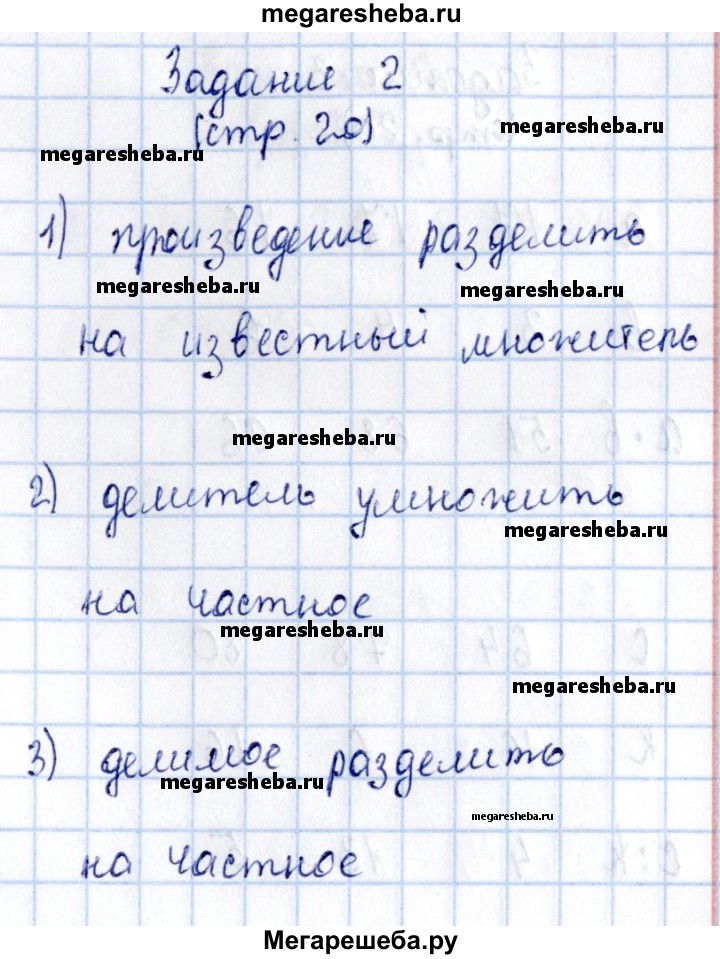 megaresheba.ru
Задание 2
(стр. 20)
megaresheba.ru
megaresheba.ru
1) произведение разделить
megaresheba.ru
megaresheba.ru
на известный множитель
megaresheba.ru
2) делитель умножить
megaresheba.ru
на частное
megaresheba.ru
megaresheba.ru
3) делимое разделить
megaresheba.ru
megaresheba.ru
на частное
Мегарешеба.ру